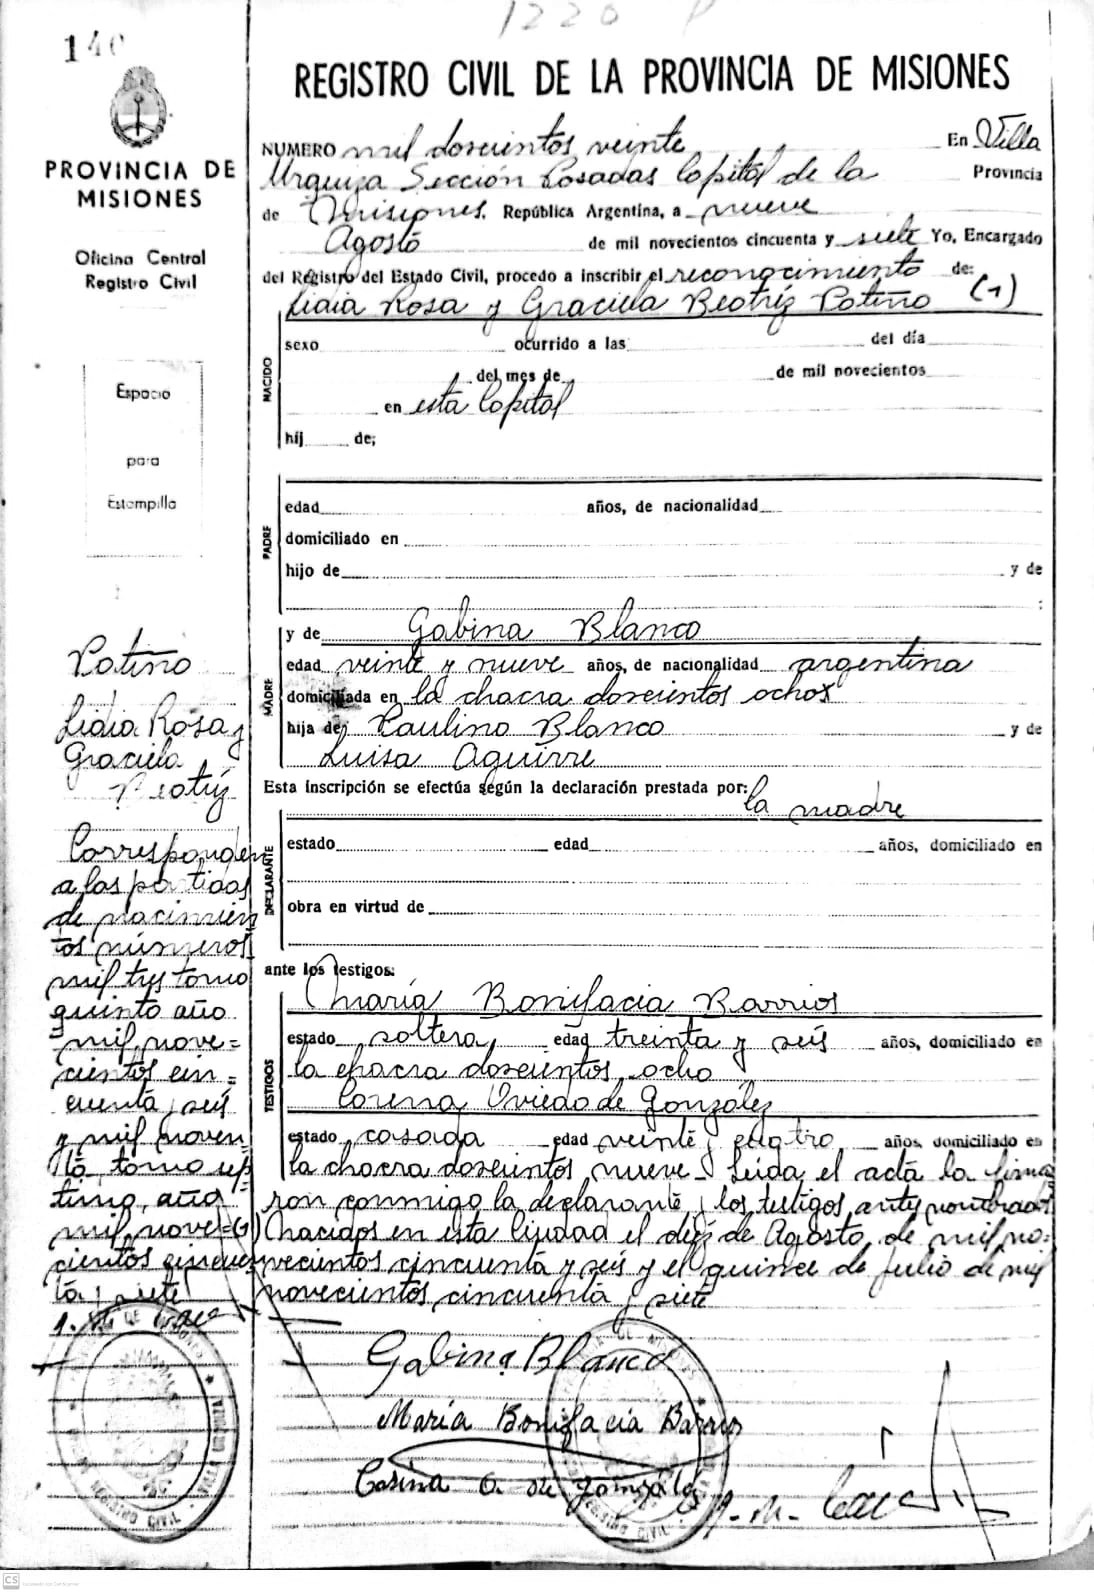 1220 P
140
REGISTRO CIVIL DE LA PROVINCIA DE MISIONES
PROVINCIA DE
MISIONES
Oficina Central
Registro Civil
Espacio
para
Estampilla
NUMERO mil doscientos veinte En Villa
Urquiza Sección Posadas Capital de la Provincia
de Misiones, República Argentina, a nueve
Agosto de mil novecientos cincuenta y siete Yo, Encargado
del Registro del Estado Civil, procedo a inscribir el reconocimiento de:
Lidia Rosa y Graciela Beatríz Patiño (1)
NACIDO
sexo ocurrido a las del día
del mes de de mil novecientos
en esta Capital
hij de;
PADRE
edad años, de nacionalidad
domiciliado en
hijo de y de
:
MADRE
y de Gabina Blanco
edad veinte y nueve años, de nacionalidad argentina
domiciliada en la chacra doscientos ocho
hija de; Paulino Blanco y de
Luisa Aguirre
Esta inscripción se efectúa según la declaración prestada por:
la madre
DECLARANTE
estado edad años, domiciliado en
obra en virtud de
ante los testigos:
TESTIGOS
María Bonifacia Barrios
estado soltera edad treinta y seis años, domiciliado en
la chacra doscientos ocho
Oviedo de González
estado casada edad veinte y cuatro años, domiciliado en
la chacra doscientos nueve Leida el acta la firma
ron conmigo la declarante y los testigos antes nombrados
(1) Nacidas en esta Ciudad el diez de Agosto de mil no=
vecientos cincuenta y seis y el quince de Julio de mil
novecientos cincuenta y siete
Patiño
Lidia Rosa y
Graciela
Beatríz
Corresponden
a las partidas
de nacimien
tos números
mil tres tomo
quinto año
mil nove=
cientos cin=
cuenta y seis
y mil noven
ta, tomo sép
timo, año
mil nove=
cientos cincuen
ta y siete
Gabina Blanco
María Bonifacia Barrios
O. de González
REGISTRO CIVIL
REGISTRO CIVIL
CS